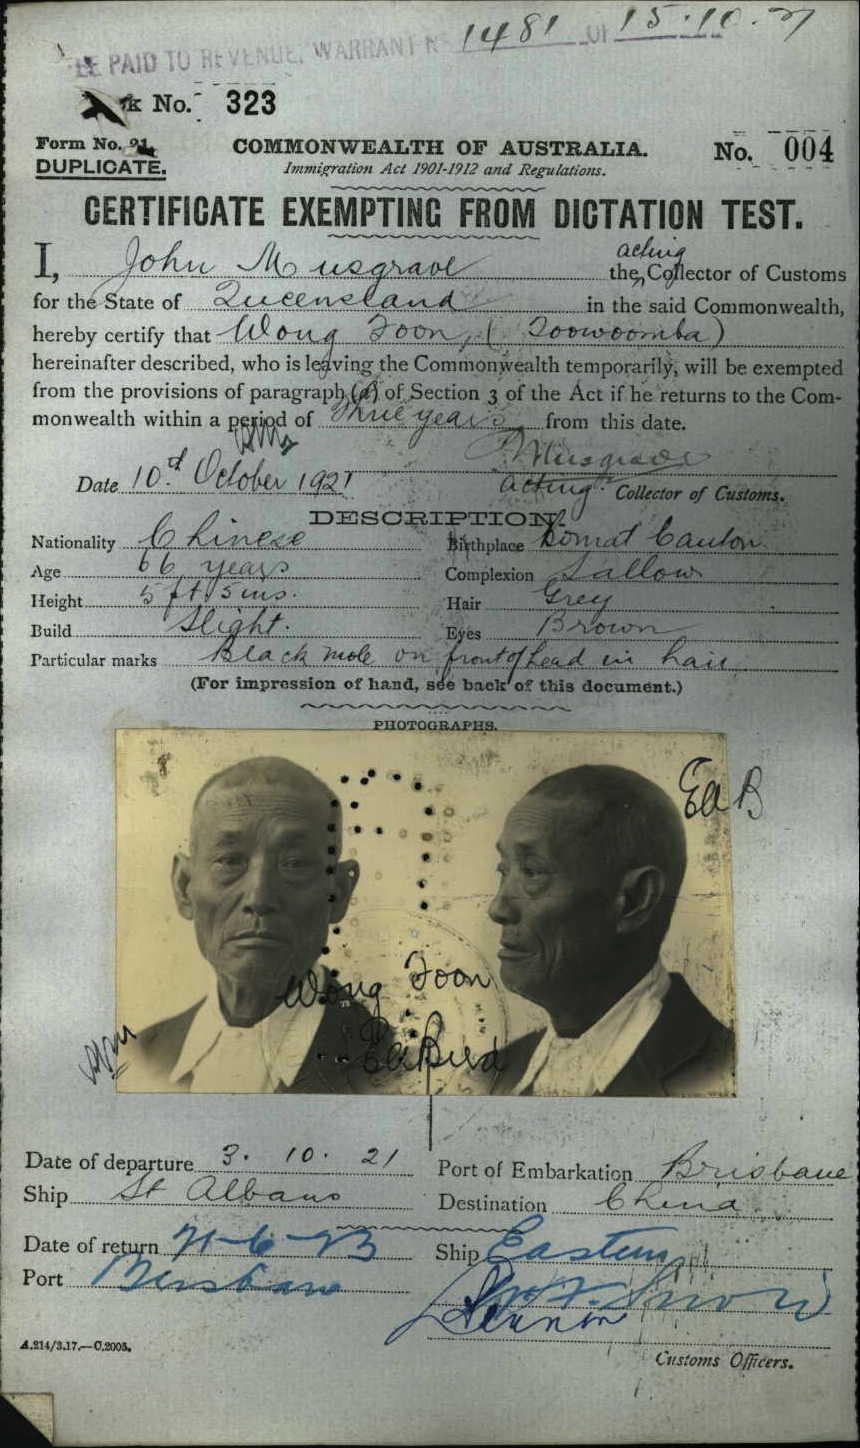 BE PAID TO REVENUE, WARRANT No 1481 OF 15.10.21
k No. 323
Form No. 21.
COMMONWEALTH OF AUSTRALIA.
No. 004
DUPLICATE.
Immigration Act 1901-1912 and Regulations.
CERTIFICATE EXEMPTING FROM DICTATION TEST.
acting
I, John Musgrave the Collector of Customs
for the State of Queensland in the said Commonwealth,
hereby certify that Wong Foon, (Toowoomba)
hereinafter described, who is leaving the Commonwealth temporarily, will be exempted
from the provisions of paragraph (a) of Section 3 of the Act if he returns to the Com-
monwealth within a period of Three years from this date.
Musgrave
Date 10th October 1921
acting Collector of Customs.
DESCRIPTION.
Nationality Chinese Birthplace Canton
Age 66 years Complexion Sallow
Height 5 ft 5 ins. Hair Grey
Build Slight. Eyes Brown
Particular marks Black mole on front of head in hair
(For impression of hand, see back of this document.)
PHOTOGRAPHS.
EaB
Wong Foon
Ea Bird
Date of departure 3. 10. 21 Port of Embarkation Brisbane
Ship St Albans Destination China
Date of return Ship Eastern
Port Brisbane
A.214/3.17.—C.2005.
Customs Officers.